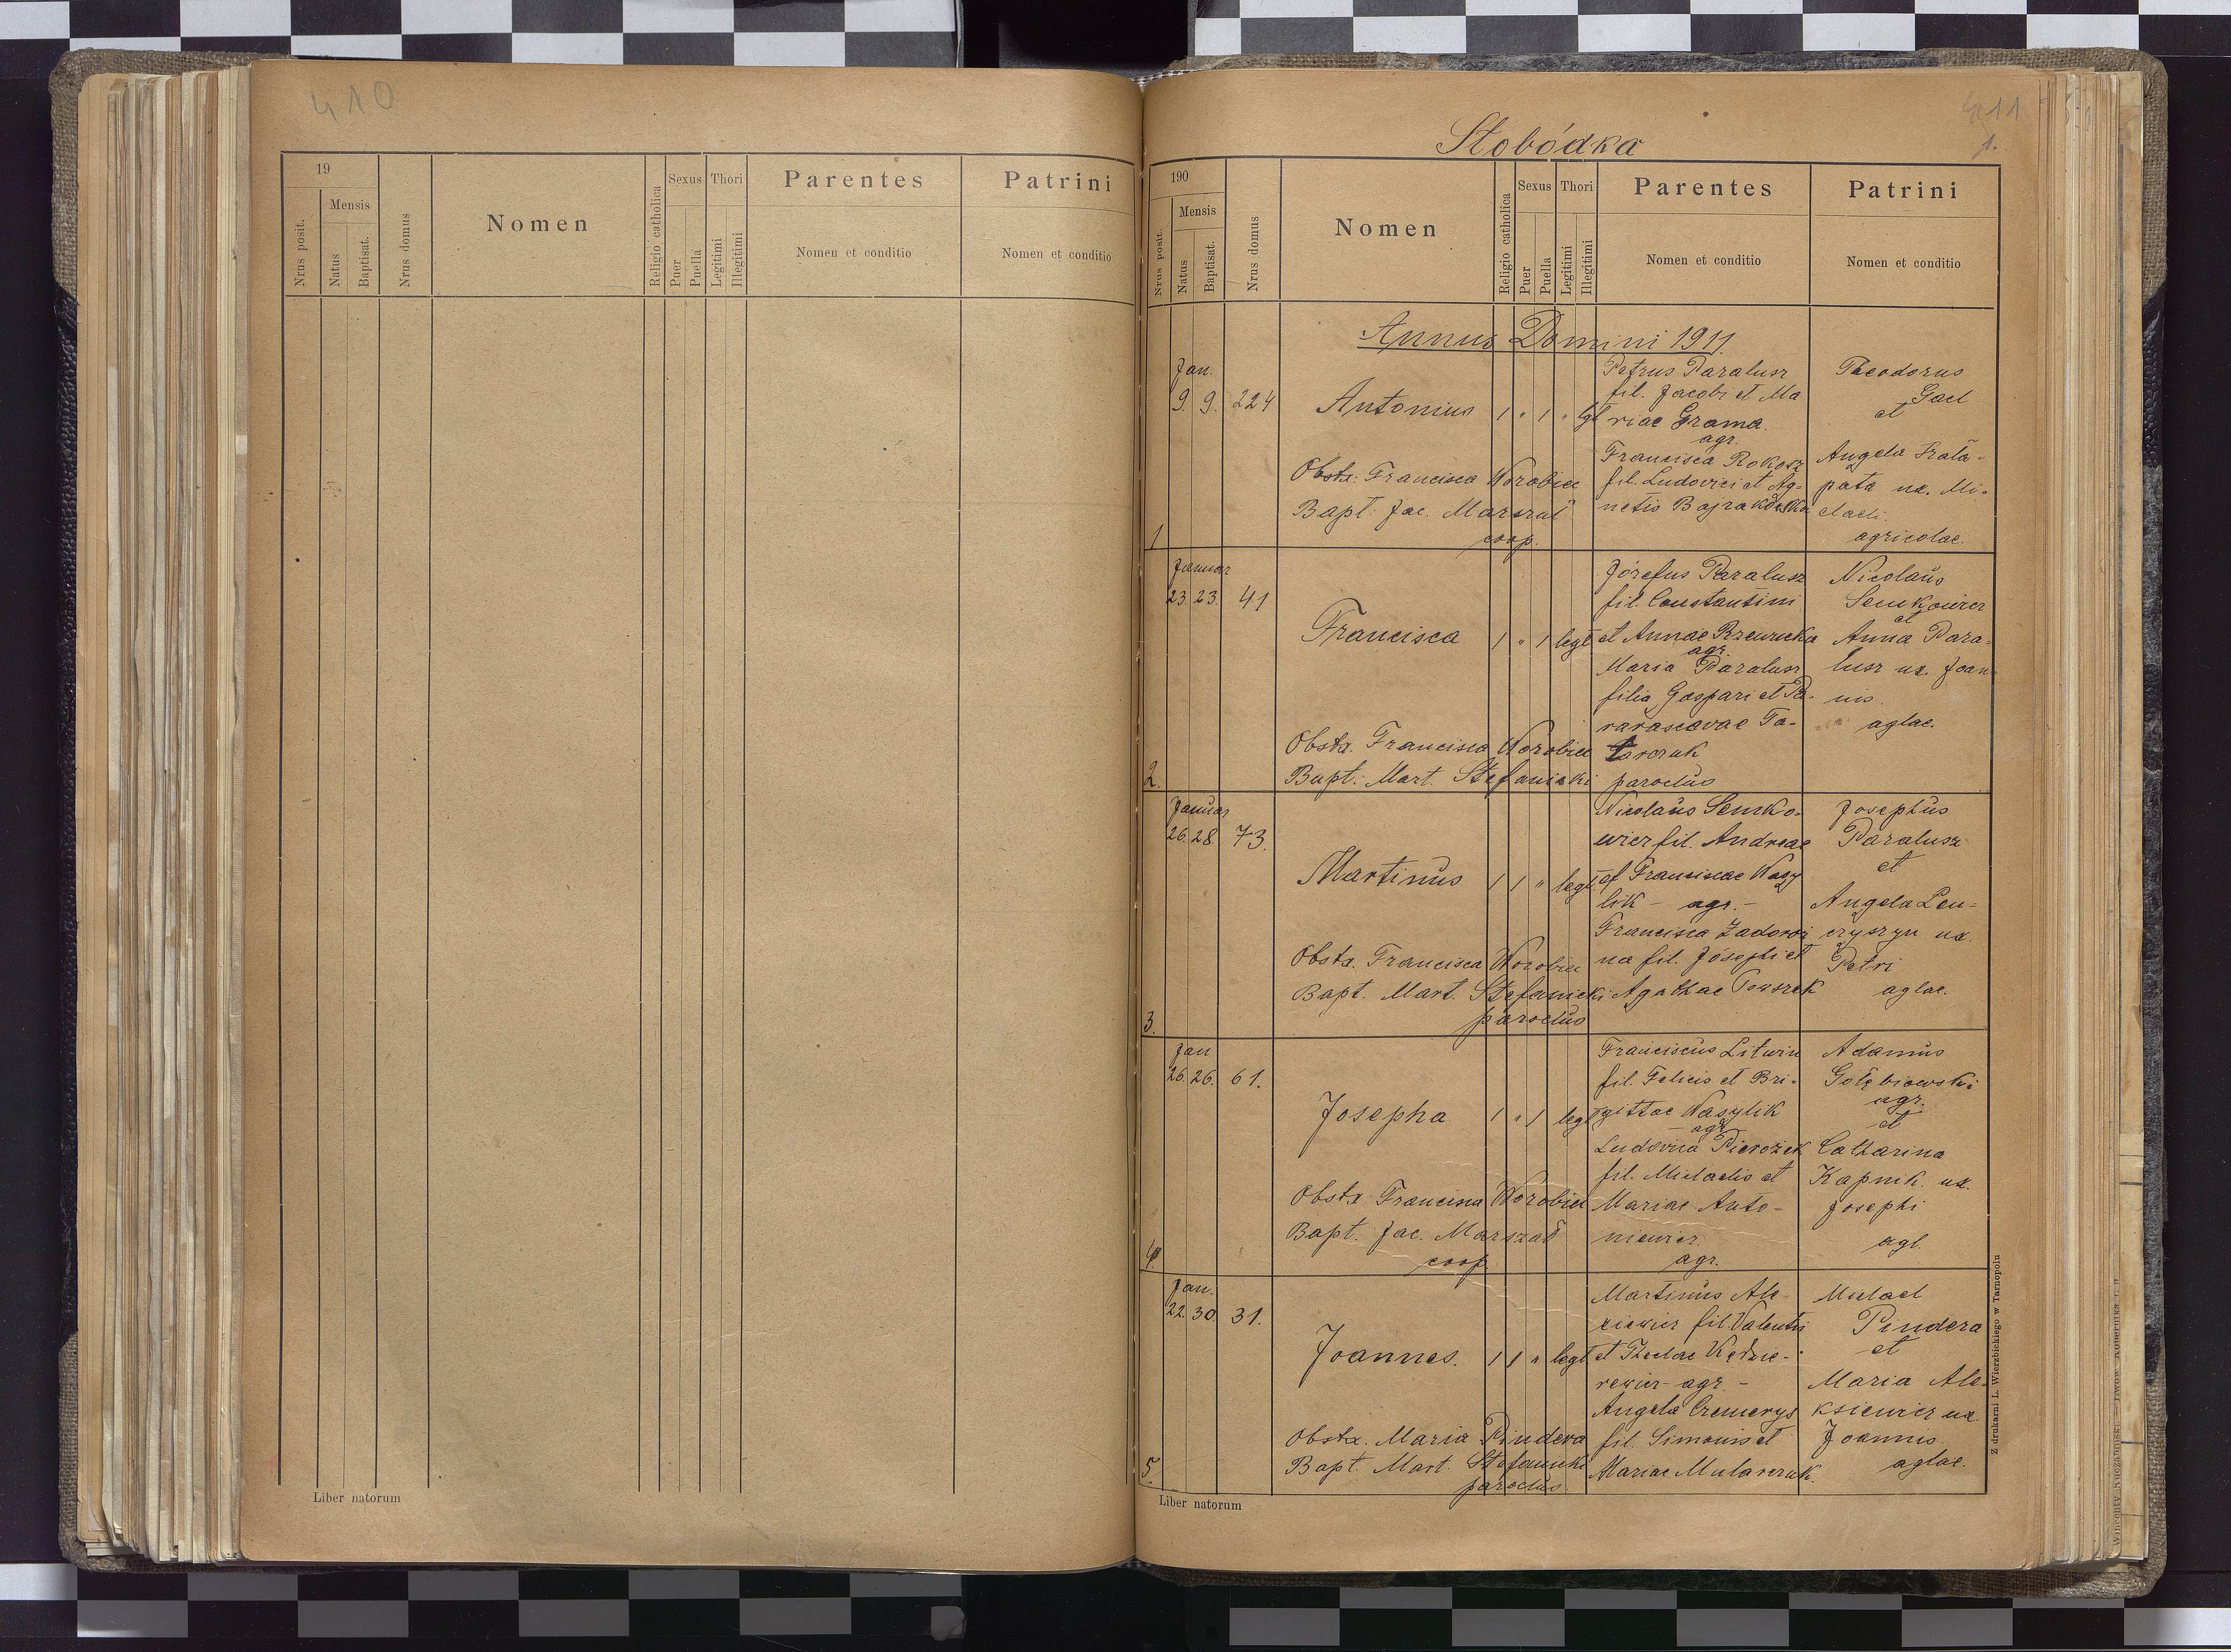 410
19
Mensis
Nrus posit.
Natus
Baptisat.
Nrus domus
Nomen
Religio catholica
Sexus
Puer
Puella
Thori
Legitimi
Illegitimi
Parentes
Nomen et conditio
Patrini
Nomen et conditio
Liber natorum
411
1.
Słobódka
190
Mensis
Nrus posit.
Natus
Baptisat.
Nrus domus
Nomen
Religio catholica
Sexus
Puer
Puella
Thori
Legitimi
Illegitimi
Parentes
Nomen et conditio
Patrini
Nomen et conditio
Annus Domini 1911
1
Jan.
9. 9. 224
Antonius 1 " 1 " lgt
Obstx: Francisca Worobiec
Bapt: Jac. Marszał
coop.
Petrus Paralusz
fil. Jacobi et Ma
riae Grama.
agr.
Francisca Rokosz
fil. Ludovici et Ag-
netis Bajrakowska
Theodorus
Gael
et
Angela
pata ux. Mi-
chaeli.
agricolae.
2.
Januar
23. 23. 41
Francisca 1 " 1 legt
Obstx. Francisca Worobiec
Bapt. Mart. Stefanicki
Józefus Paralusz
fil. Constantini
et Annae Rzewucka
agr.
Maria Paralusz
filia Gaspari et Pa-
rarascavae Ta-
tarczuk
parochus
Nicolaus
Semkowicz
et
Anna Para-
lusz ux. Joan-
nis.
aglae.
3.
Januar
26. 28. 73.
Martinus 1 1 " legt
Obstx. Francisca Worobiec
Bapt. Mart. Stefanicki
parochus
Nicolaus Semko-
wicz fil. Andreae
et Franciscae Wasy
lik - agr. -
Francisca Zadoroż
na fil. Josephi et
Agathae
Josephus
Paralusz
et
Angela Len-
czyszyn ux.
Petri
aglae.
4.
Jan
26. 26. 61.
Josepha 1 " 1 legt
Obstx. Francisca Worobiec
Bapt. Jac. Marszał
coop
Franciscus Litwin
fil. Felicis et Bri-
gittae Wasylik
- agr.
Ludovica Pierożek
fil. Michaelis et
Mariae Anto-
niewicz
agr.
Adamus
Gołębiowski
agr.
et
Catharina
Kapnik ux.
Josephi
agl.
5.
Jan.
22. 30. 31.
Joannes. 1 1 " legt
Obstx. Maria Pindera
Bapt. Mart. Stefanicki
parochus
Martinus Ale-
xiewicz fil. Valentii
et Theclae
agr. -
Angela Czemerys
fil. Simonis et
Mariae Mularczuk.
Michael
Pindera
et
Maria Ale-
ksiewicz ux
Joannis.
aglae.
Liber natorum
Z drukarni L. Wierzbickiego w Tarnopolu